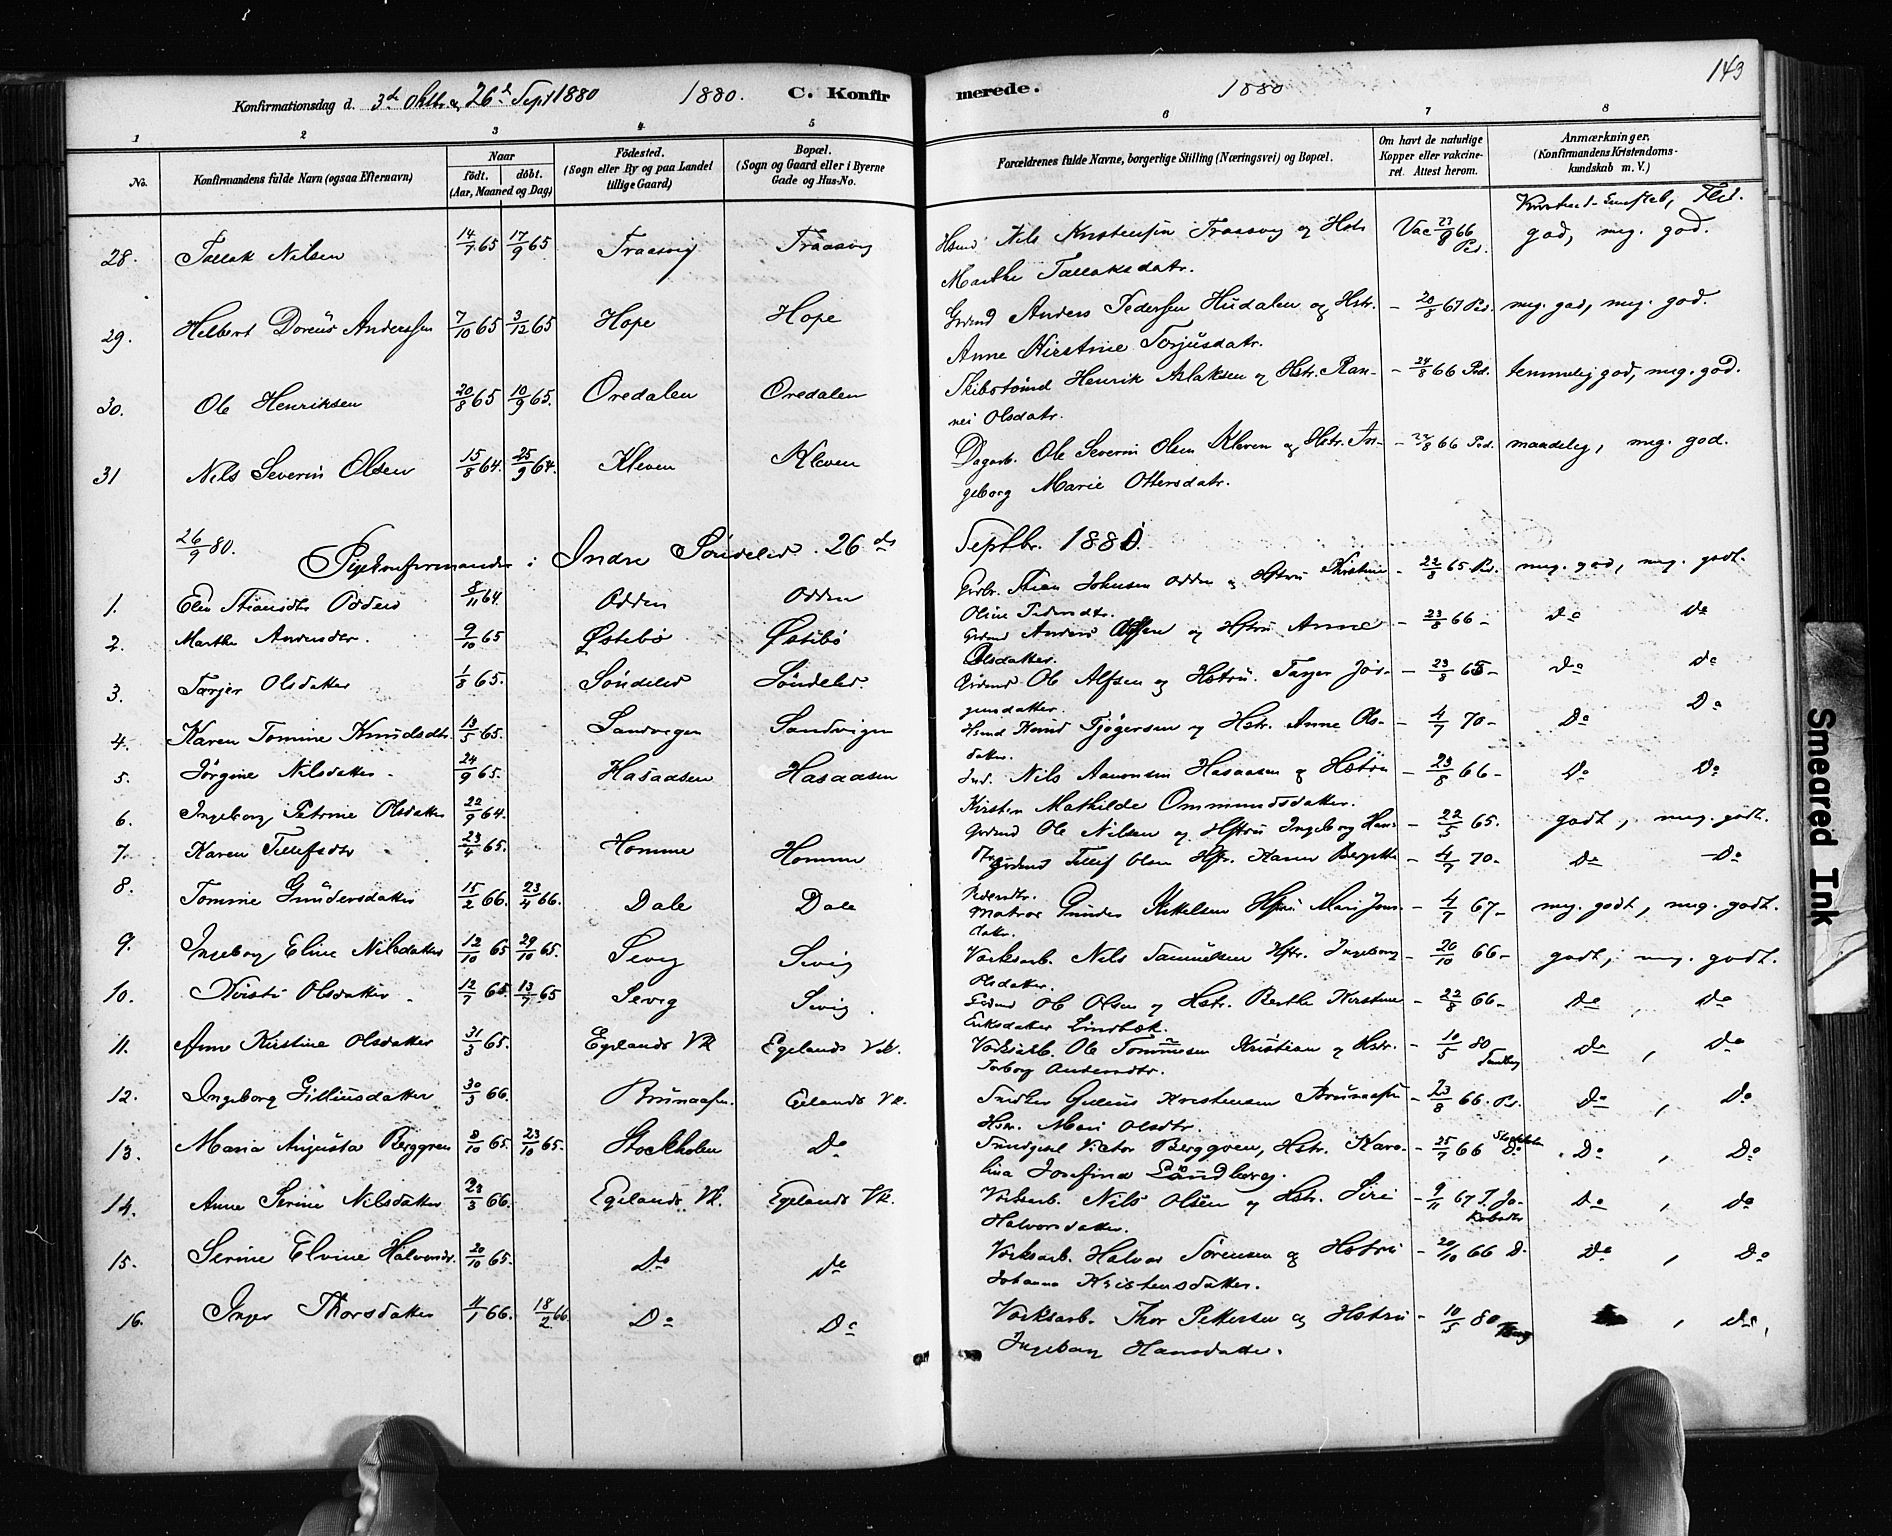 143
Konfirmationsdag d. 3de Oktbr og 26de Sept 1880 1880. C. Konfirmerede. 1880
1 2 3 4 5 6 7 8
No. Konfirmandens fulde Navn (ogsaa Efternavn) Naar født. døbt. (Aar, Maaned og Dag) Fødested. (Sogn eller By og paa Landet tillige Gaard) Bopæl. (Sogn og Gaard eller i Byerne Gade og Hus-No. Forældrenes fulde Navne, borgerlige Stilling (Næringsvei) og Bopæl. Om havt de naturlige Kopper eller vakcineret. Attest herom. Anmærkninger. (Konfirmandens Kristendomskundskab m. V.)
28. Tallak Nilsen 14/7 65 17/9 65 Traasvig Traasvig Hsmd Nils Kristensen Traasvig og Hstr Vac 23/8 66 Pd. god, meg. god.
Marthe Tallaksdatr.
29. Helbert Doreus Anderssen 7/10 65 3/12 65 Hope Hope Grdmd Anders Pedersen Hudalen og Hstr. - 20/8 67 Pd. meg. god, meg. god.
Anne Kirstine Torjusdatr.
30. Ole Henriksen 20/8 65 10/9 65. Oredalen Oredalen Skibstømd Henrik Aslaksen og Hstr. Ran- - 24/8 66 Pd. temmelig god, meg. god.
nei Olsdatr.
31 Nils Severin Olsen 15/8 64. 25/9 64. Kleven Kleven Dagarb. Ole Severin Olsen Kleven og Hstr. In- - 24/8 66 Pd. maadelig, meg. god.
geborg Marie Ottersdatr.
26/9 80. Pigekonfirmander i Indre Søndeled. 26de Septbr. 1880.
1. Elen Stiansdtr Odden 8/11 64. Odden Odden Grdbr. Stian Johnsen Odden og Hstru Kirstine - 22/8 65 Pd. meg. god, meg. godt.
Oline Pedersdtr.
2. Marthe Andersdtr. 9/10 65 Østebø Østebø Grdmd Anders Olsen og Hstru Anne - 23/8 66 - Do Do
Olsdatter.
3. Tarjer Olsdatter 1/8 65. Søndeled Søndeled. Grdmd Ole Alfsen og Hstru. Tarjer Jør- - 23/8 66 - Do Do
gensdatter.
4. Karen Tomine Knudsdtr. 13/5 65. Sandvigen Sandvigen Hsmd Knud Tjøgersen og Hstr. Anne Ols- - 4/7 70 - Do Do
datter.
5. Jørgine Nilsdatter 24/9 65. Hasaasen Hasaasen Ind. Nils Aanonsen Hasaasen og Hstru - 23/8 66 - Do Do
Kirsten Mathilde Ommundsdatter.
6. Ingeborg Petrine Olsdatter 22/9 64. Grdmd Ole Nilsen og Hstru Ingeborg Han- - 22/5 65. godt, meg. godt.
7. Karen Tellefsdtr 23/4 65. Homme Homme Grdmd Tellef Olsen Hstr. Karen Bergitte - 4/7 70 - Do Do
Pedersdtr.
8. Tomine Gundersdatter 15/2 66. 23/4 66. Dale Dale Matros Gunder Kittelsen Hstru Mari Jens- - 4/7 67 - meg. godt, meg. godt.
datr.
9. Ingeborg Eline Nilsdatter 12/10 65 29/10 65. Sevig Sevig Værksarb. Nils Samuelsen Hstr. Ingeborg - 20/10 66 - godt, meg. godt.
Olsdatter.
10. Kirsti Olsdatter 12/7 65. 13/7 65 Sevig Sevig Grdmd Ole Olsen og Hstr. Berthe Kirstine - 22/8 66 - Do, Do
Eriksdatter Lindbæk.
11. Anne Kirstine Olsdatter 31/3 65. Egelands Vk Egelands Vrk. Værksarb. Ole Tommesen Kristian og Hstr. - 10/5 80 Do, Do
Torborg Andersdtr.
12. Ingeborg Gilliusdatter 30/3 66. Brunaasen. Egelands Vk. Snedker Gullius Kristensen Brunaasen - 23/8 66. Pd. Do, Do
Hstr. Mari Olsdtr.
13. Maria Augusta Berggren 2/10 65. 23/10 65. Stockholm Do Smedgesel Victor Berggren, Hstr. Karo- - 25/7 66 Stockholm Do. Do, Do
lina Josefina Landberg.
14. Anne Serine Nilsdatter 23/3 66. Egelands Vk. Egelands Vk. Værksarb. Nils Olsen og Hstr. Siri - 9/11 67 Do, Do
Halvorsdatter.
15. Serine Elvine Halvorsdr. 20/10 65. Do Do Værksarb. Halvor Sørensen og Hstru - 20/10 66 D. Do, Do
Johanne Kristensdatter.
16. Inger Thorsdatter 4/1 66. 18/2 66. Do Do Værksarb. Thor Pettersen og Hstru - 10/5 80, Do,
Ingeborg Hansdatter.
Smeared Ink